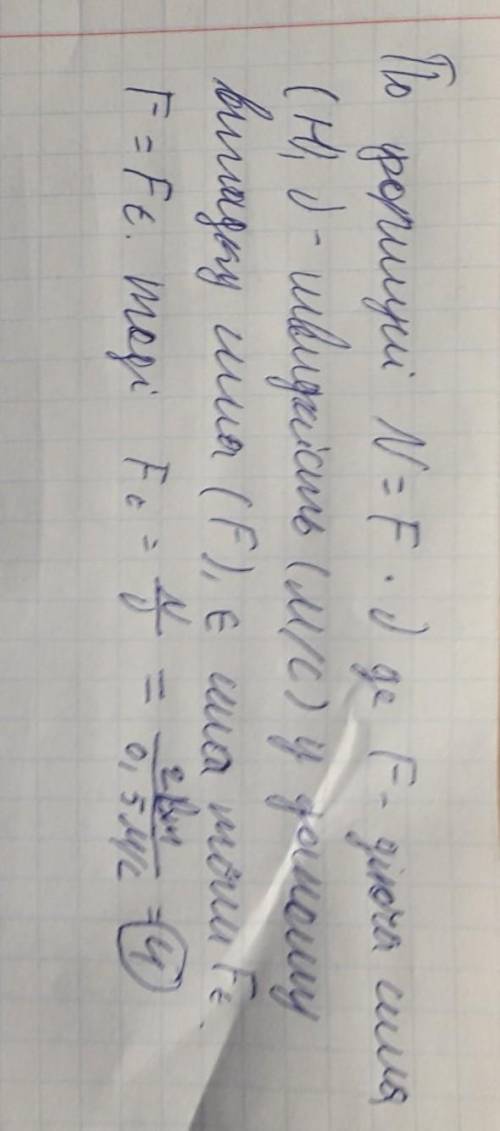 По формулі N = F · υ де F - діюча сила
(Н), υ - швидкість (м/с) у даному
випадку сила (F), є сила тяги Fт.
F = Fт. тоді Fт = N/υ = 2Вт/0,5 м/с = 4